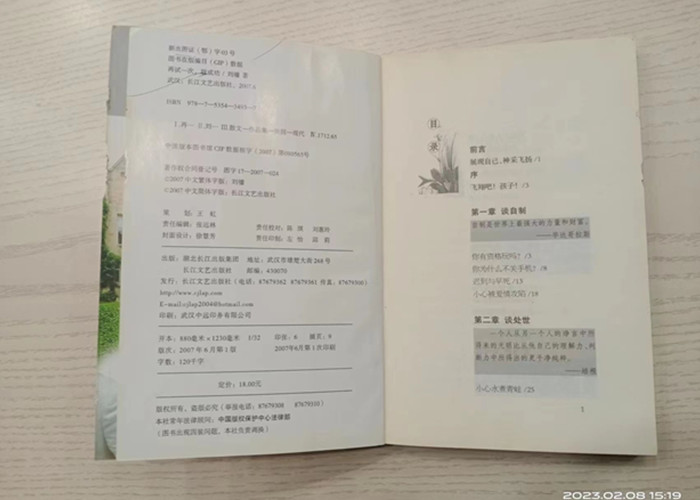 新出图证（鄂）字03号
图书在版编目（CIP）数据
再试一次，就成功／刘墉 著
武汉：长江文艺出版社，2007.6
ISBN 978-7-5354-
中国版本图书馆CIP数据核字（2007）第
著作权合同登记号 图字17-2007-024
©2007中文繁体字版：刘墉
©2007中文简体字版：长江文艺出版社
策 划：王 虹
责任编辑：张远林
责任校对：陈 琪
封面设计：徐慧芳
责任印制：左 怡
出版：湖北长江出版集团 地址：武汉市雄楚大街268号
长江文艺出版社 邮编：430070
发行：长江文艺出版社（电话：87679362 87679361 传真：87679300）
http://www.cjlap.com
E-mail:cjlap2004@hotmail.com
印刷：武汉中远印务有限公司
开本：880毫米×1230毫米 1/32 印张：6 插页：9
版次：2007年6月第1版 2007年6月第1次印刷
字数：120千字
定价：18.00元
版权所有，盗版必究（举报电话：87679308 87679310）
本社常年法律顾问：中国版权保护中心法律部
（图书出现印装问题，本社负责调换）
目录
前言
展现自己，神采飞扬/1
序
飞翔吧！孩子！/3
第一章 谈自制
自制是世界上最强大的力量和财富。
你有资格玩吗？/3
你为什么不关手机？/8
迟到与早死/13
小心被爱情攻陷/19
第二章 谈处世
一个人从另一个人的诤言中所
得来的光明比从他自己的理解力、判
断力中所得出的更干净纯粹。
——培根
小心水煮青蛙/25
1
2023.02.08 15:19